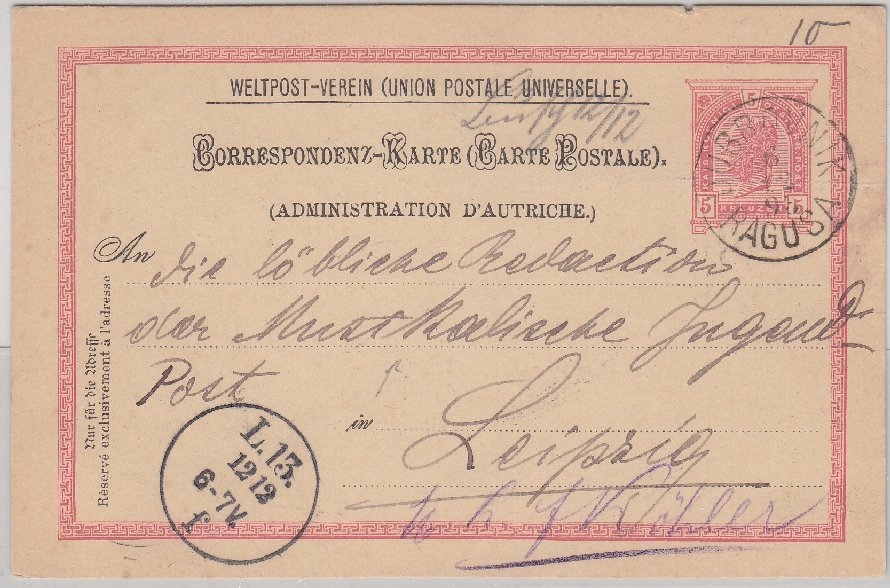 10
WELTPOST-VEREIN (UNION POSTALE UNIVERSELLE).
12/12
CORRESPONDENZ-KARTE (CARTE POSTALE).
(ADMINISTRATION D'AUTRICHE.)
5
5 KREUZER 5
RAGUSA
An die löbliche Redaction
der Musikalische Jugend
Post
in Leipzig
Nur für die Adresse
Réservé exclusivement à l'adresse
L. 13.
12 12
6-7V.
f